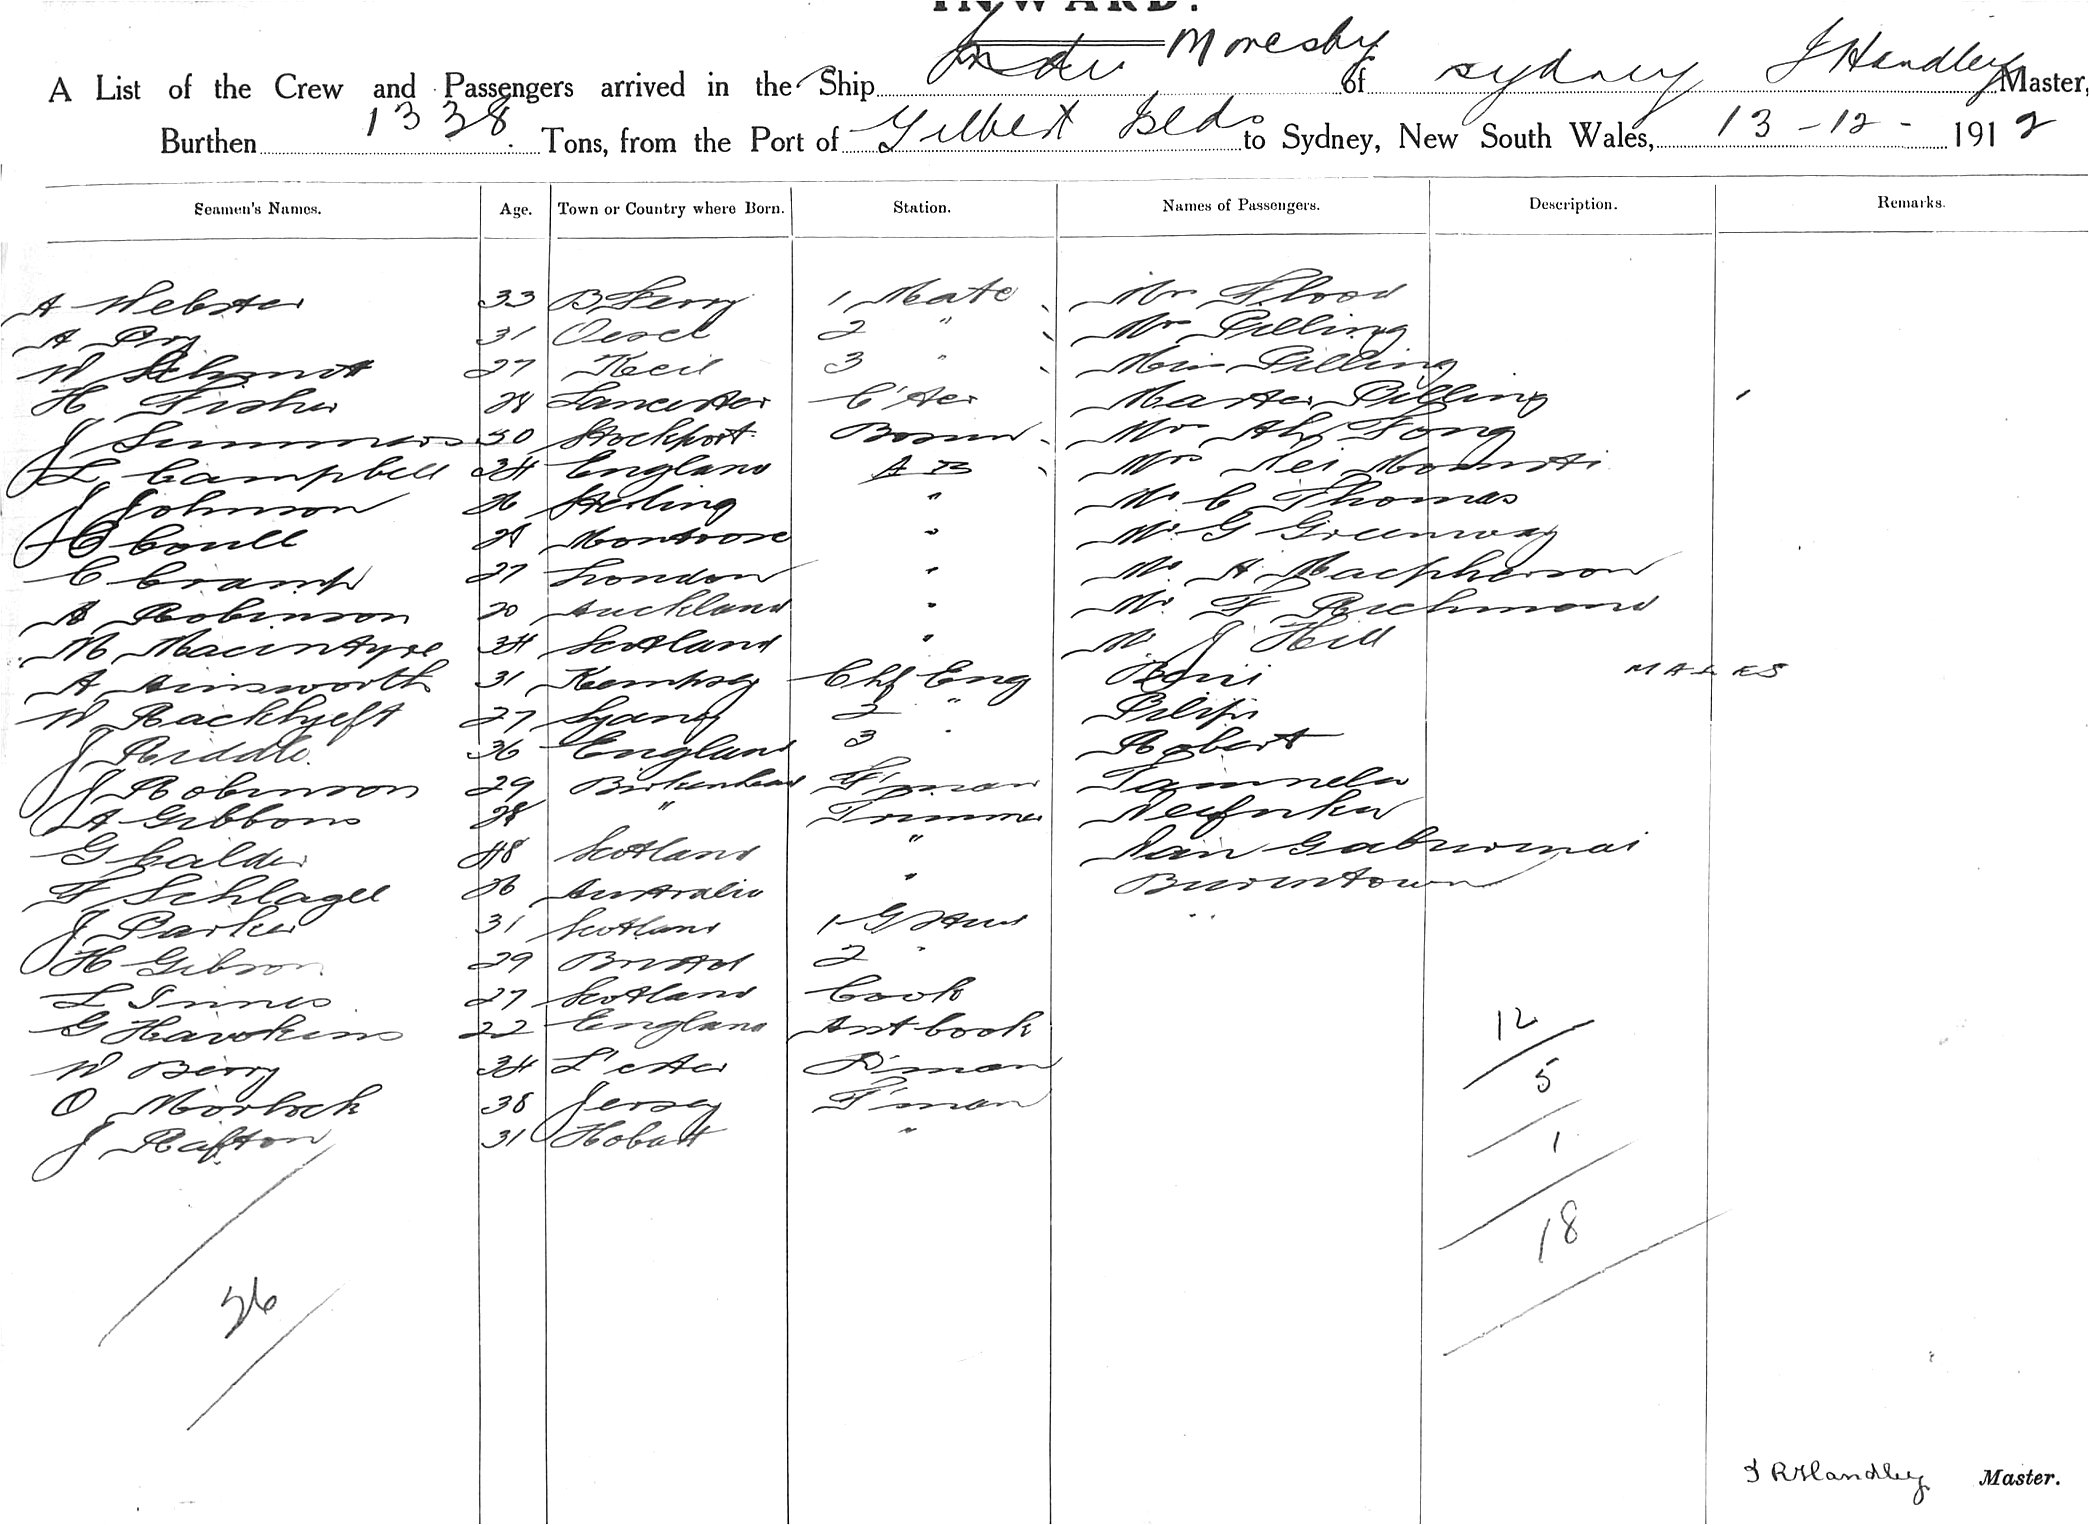 INWARD.
Moresby
A List of the Crew and Passengers arrived in the Ship of Sydney J Handley Master,
Burthen 1338 Tons, from the Port of Gilbert Islds to Sydney, New South Wales, 13-12- 1912
Seamen's Names. Age. Town or Country where Born. Station. Names of Passengers. Description. Remarks.
A Webster 33 B Ferry 1 Mate Mr Flood
A 31 Oesel 2 " Mrs Pilling
W Schmidt 27 3 " Miss Pilling
H Fisher 28 Lancester C'ter Master Pilling
J Simmers 30 Stockport Bosun Mr Ah Fong
L Campbell 34 England A B Mrs Nei
J Johnson 26 Sterling " Mr C Thomas
H Coull 28 Montrose " Mr G Greenway
C Cramp 27 London " Mr A Macpherson
A Robinson 20 Auckland " Mr F Richmond
M Macintyre 34 Scotland " Mr J Hill
A Ainsworth 31 Kempsey Chf Eng MALES
W 27 2 "
J Riddle 36 England 3 " Robert
J Robinson 29 Birkenhead F'man
A Gibbons 28 " Trimmer
G Calder 48 Scotland "
F Schlagel 26 Australia "
J Parker 31 Scotland 1
H Gibson 29 Bristol 2 "
L Innes 27 Scotland Cook
G Hawkins 22 England Ast Cook
W Berry 34 L'ester F'man
O Morlock 38 Jersey F'man
J Rafton 31 Hobart "
12
5
1
18
26
J R Handley Master.